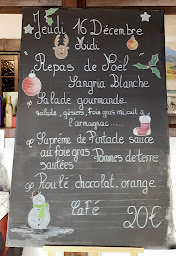 Jeudi 16 Décembre
Midi
Repas de Noël
Sangria Blanche
Salade gourmande
salade, gésiers, foie gras mi cuit à
l'armagnac.....
Suprême de Pintade sauce
au foie gras Pommes de terre
sautées
Roulé chocolat. orange
Café
20€